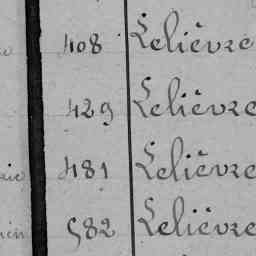 408 Lelièvre
429 Lelièvre
481 Lelièvre
582 Lelièvre